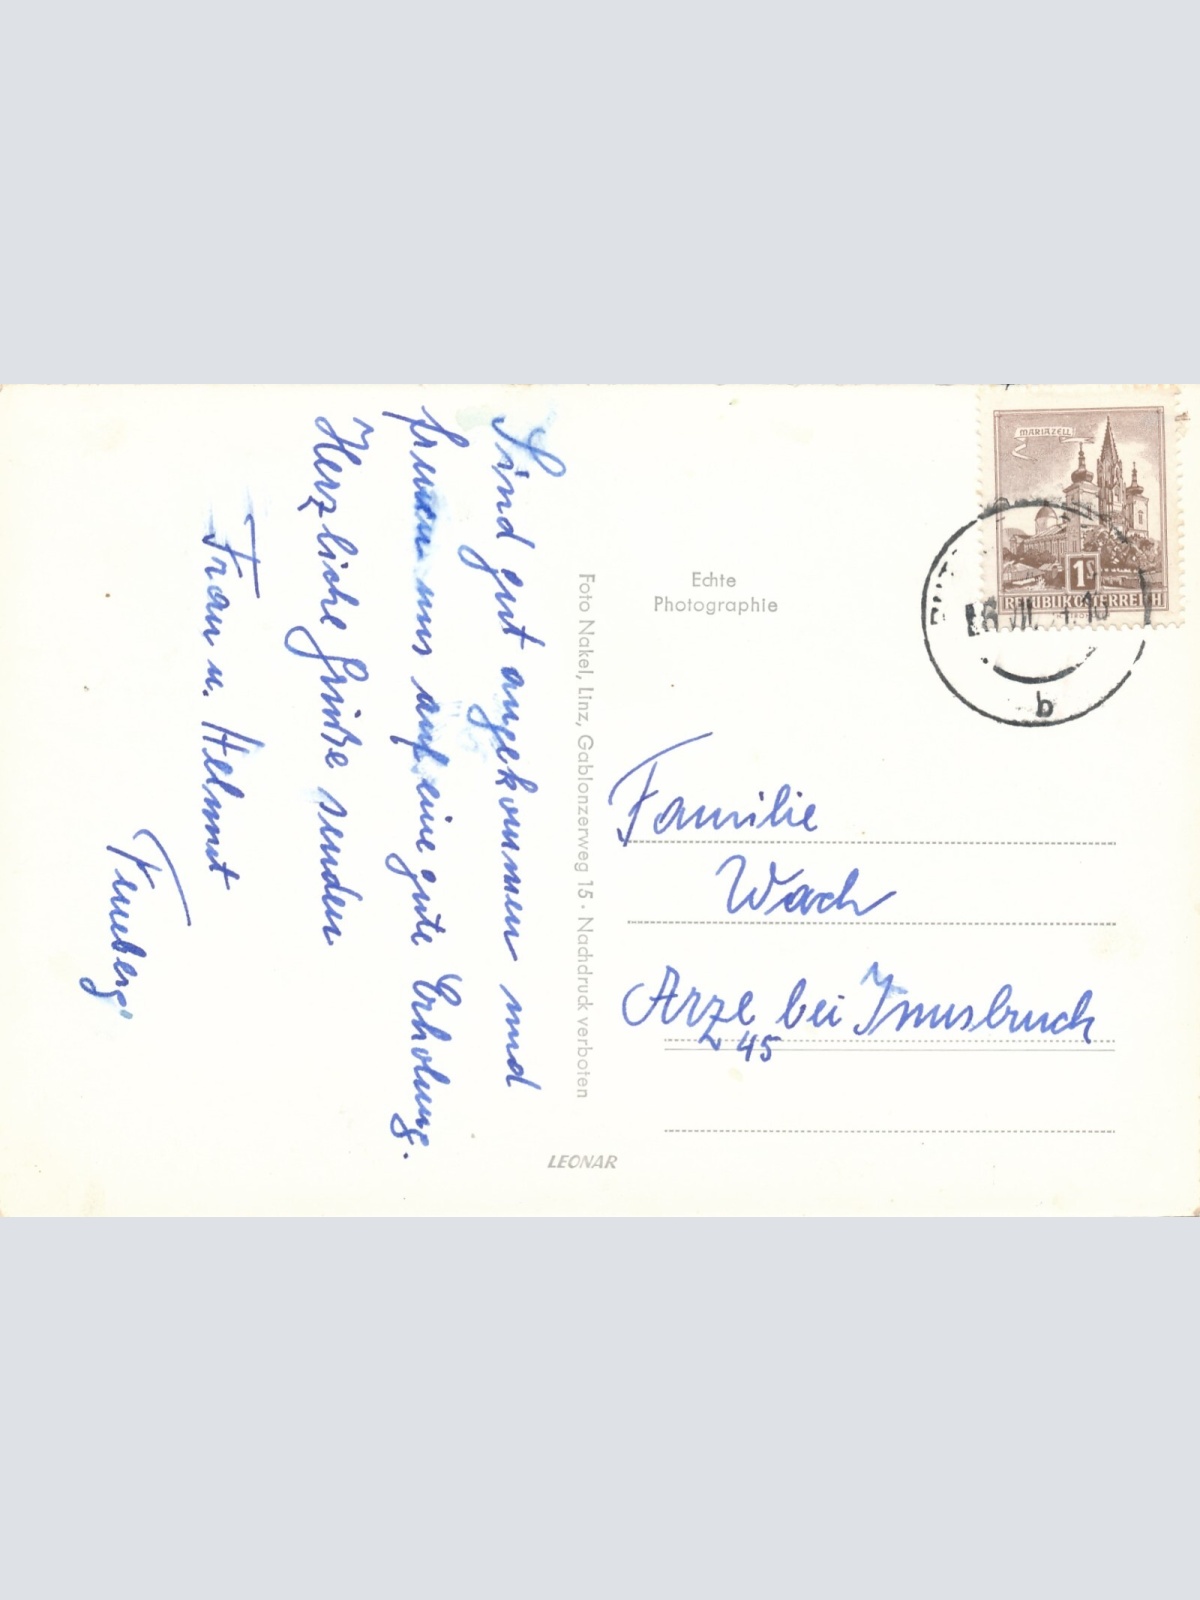 Sind gut angekommen und
freuen uns auf eine gute Erholung.
Herzliche Grüße senden
Frau u. Helmut
Foto Nakel, Linz, Gablonzerweg 15 · Nachdruck verboten
Echte
Photographie
MARIAZELL
1S
REPUBLIK ÖSTERREICH
b
Familie
Wach
Arzl bei Innsbruck
45
LEONAR